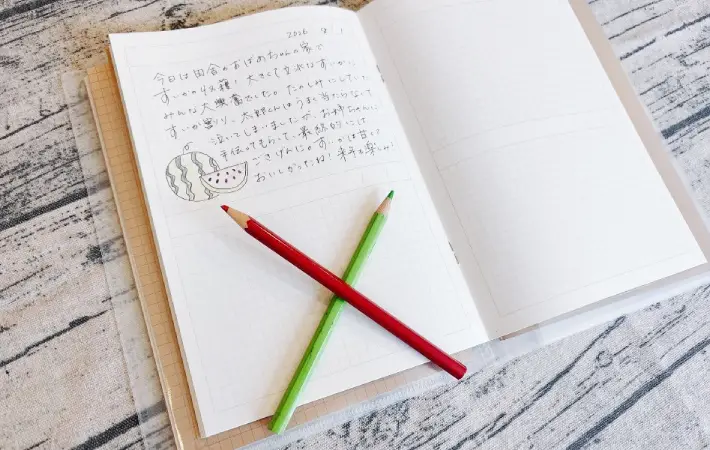 2016 8 1
今日は田舎のおばあちゃんの家で
すいかの収穫！大きくて立派なすいかに
みんな大興奮でした。たのしみにしていた
すいか割り、太郎くんはうまく当たらなくて
泣いてしまいましたが、お姉ちゃんに
手伝ってもらって、最終的には
ごきげんに♪すいかは甘い
おいしかったね！来年も楽しみ！